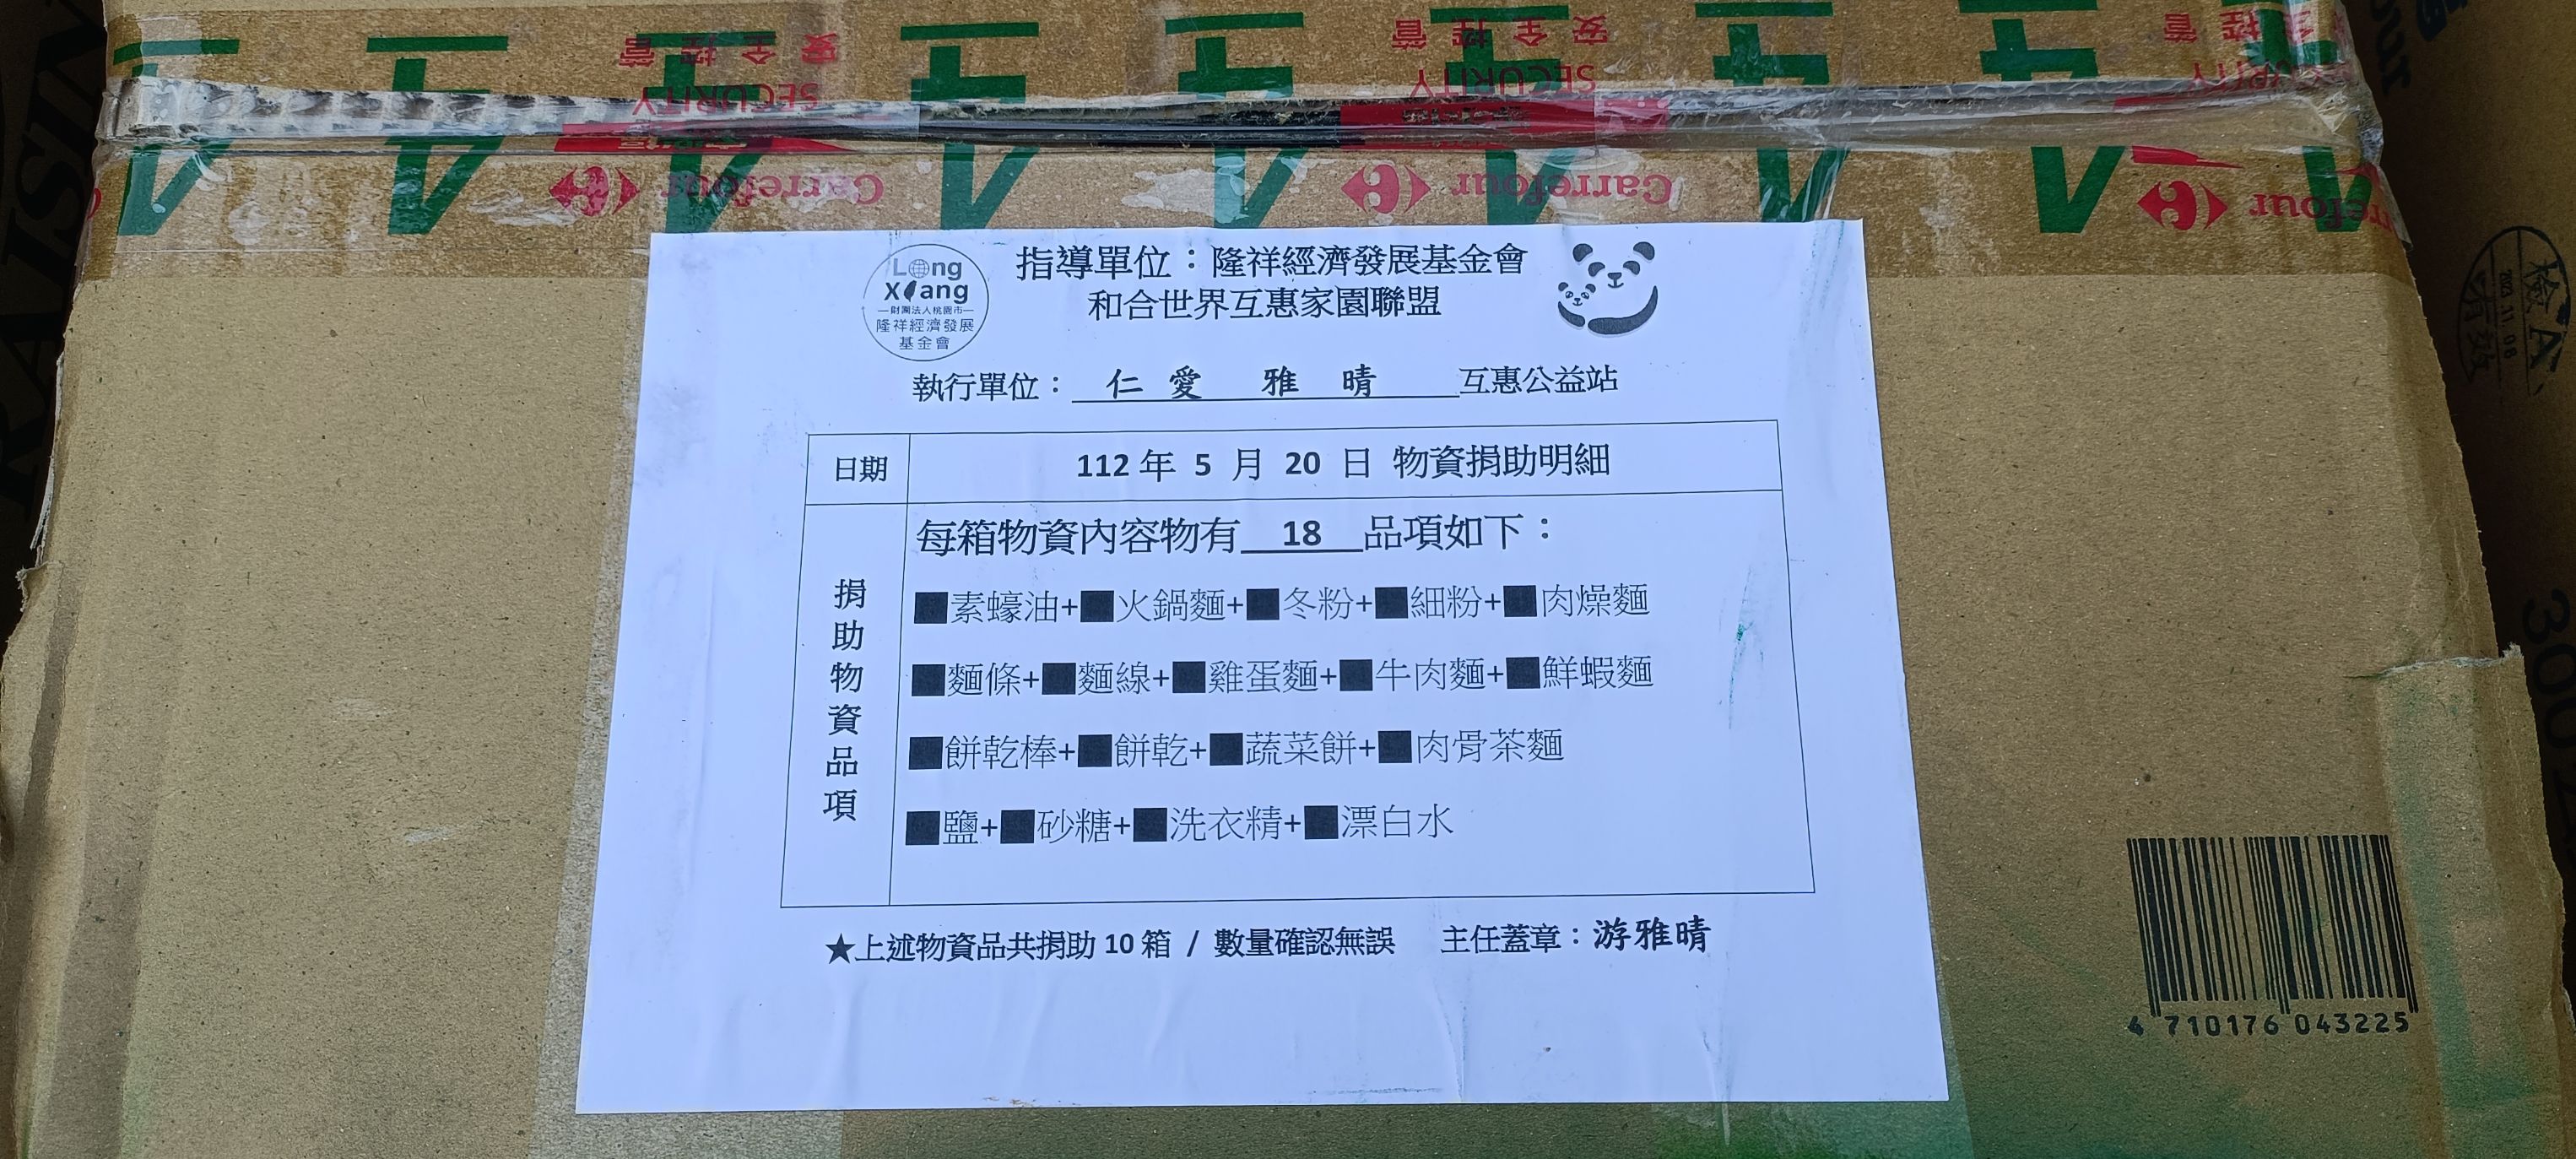 安全控管
SECURITY
Carrefour
安全控管
SECURITY
Carrefour
Long
Xiang
財團法人桃園市
隆祥經濟發展
基金會
指導單位：隆祥經濟發展基金會
和合世界互惠家園聯盟
執行單位：仁愛 雅晴 互惠公益站
日期
112 年 5 月 20 日 物資捐助明細
捐助物資品項
每箱物資內容物有 18 品項如下：
■素蠔油+■火鍋麵+■冬粉+■細粉+■肉燥麵
■麵條+■麵線+■雞蛋麵+■牛肉麵+■鮮蝦麵
■餅乾棒+■餅乾+■蔬菜餅+■肉骨茶麵
■鹽+■砂糖+■洗衣精+■漂白水
★上述物資品共捐助 10 箱 / 數量確認無誤 主任蓋章：游雅晴
4 710176 043225